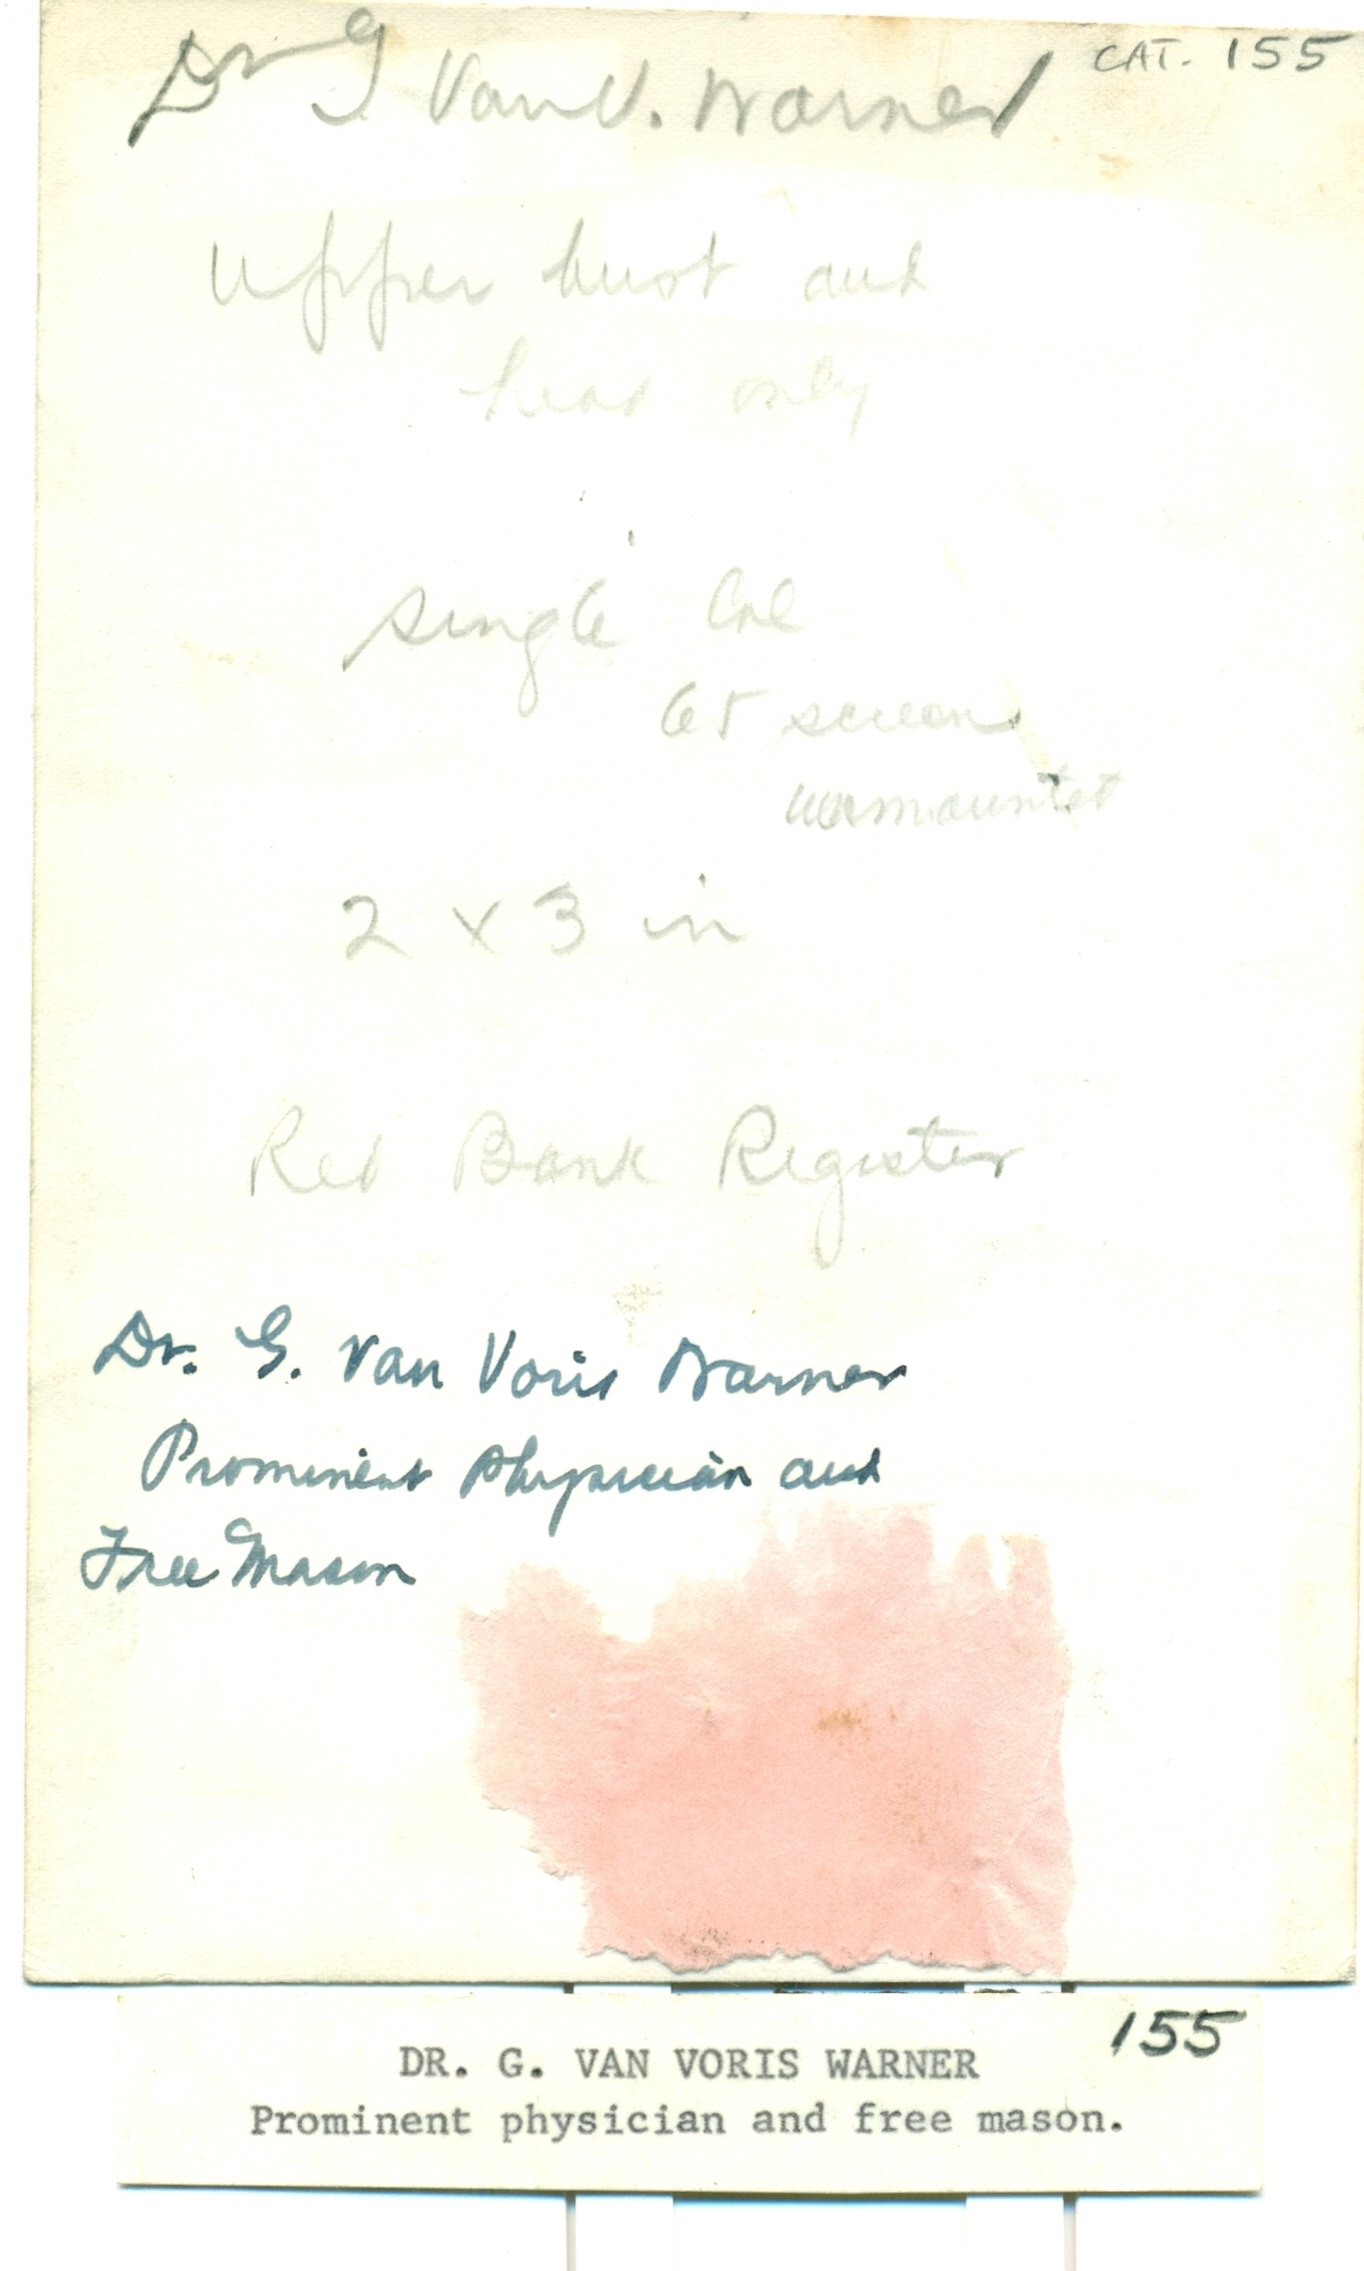 CAT. 155
Dr G Van V. Warner
Upper bust and
head only
single Col
65 screen
unmounted
2 x 3 in
Red Bank Register
Dr. G. Van Voris Warner
Prominent Physician and
Free Mason
155
DR. G. VAN VORIS WARNER
Prominent physician and free mason.